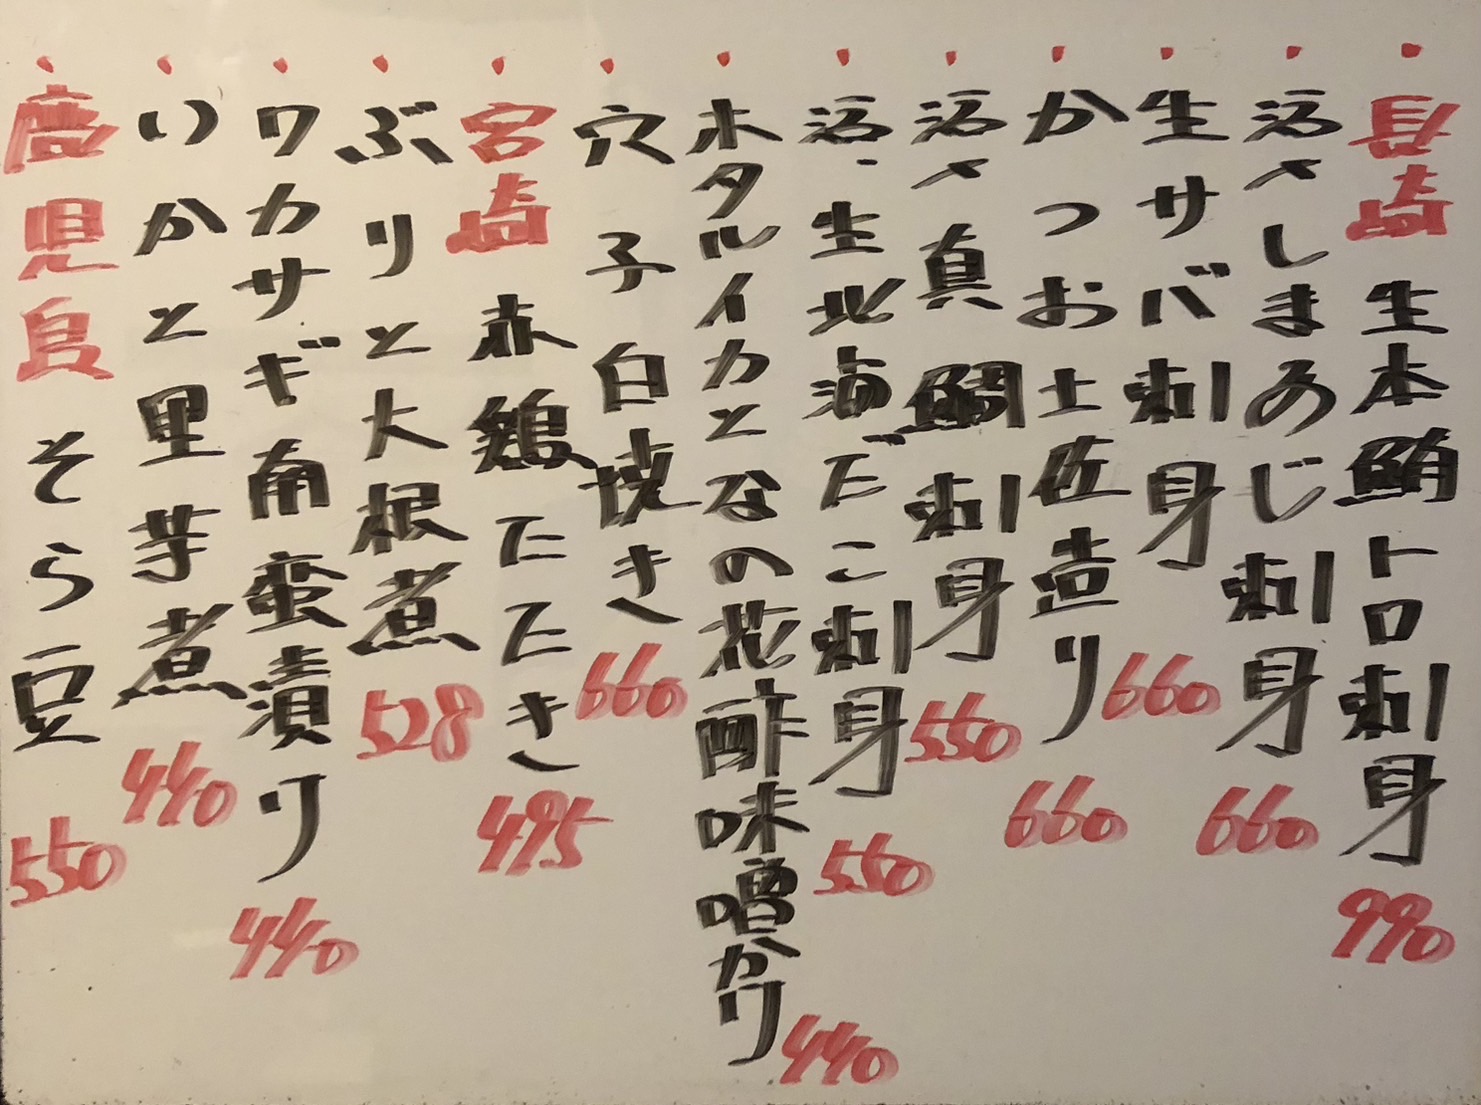 ・長崎 生本鮪トロ刺身 990
・活〆しまあじ刺身 660
・生サバ刺身 660
・かつお土佐造り 660
・活〆真鯛刺身 550
・活〆生北海だこ刺身 550
・ホタルイカとなの花酢味噌かり 440
・穴子白焼き 660
・宮崎 赤鶏たたき 495
・ぶりと大根煮 528
・ワカサギ南蛮漬り 440
・いかと里芋煮 440
・鹿児島 そら豆 550